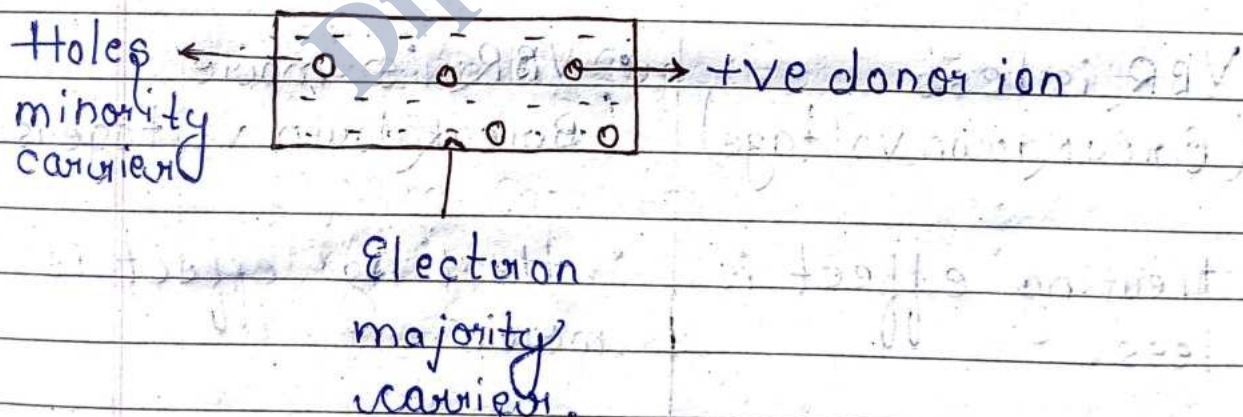 Holes
minority
carrier
+ve donor ion
Electron
majority
carrier.